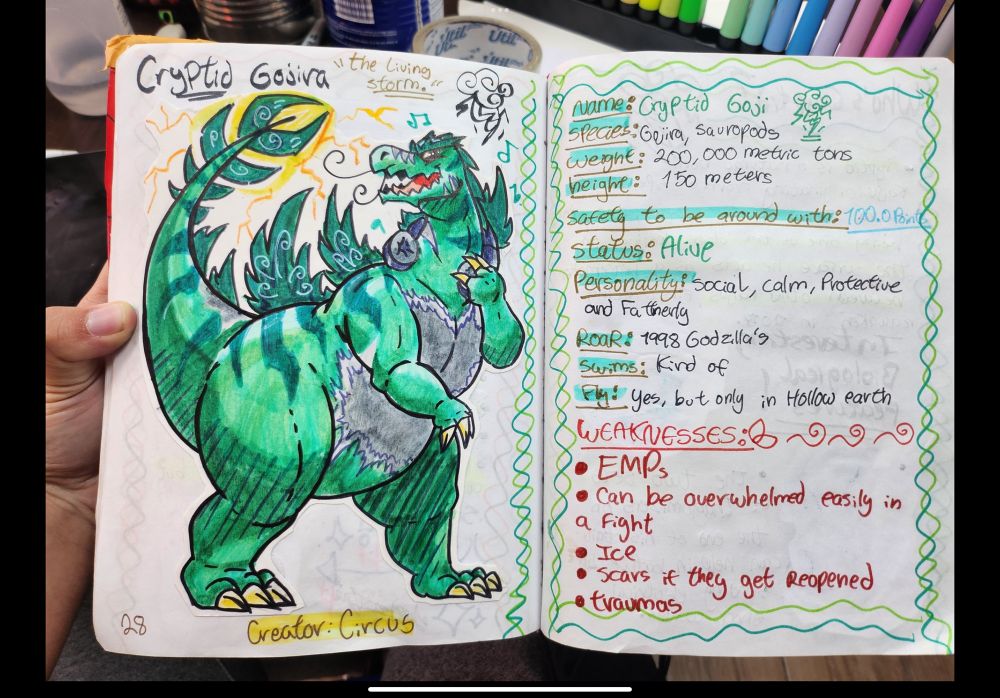 Cryptid Gojira
"the Living
storm."
28
Creator: Circus
name: Cryptid Goji
species: Gojira, sauropods
weight: 200,000 metric tons
height: 150 meters
safety to be around with: 100.0 Points
status: Alive
Personality: social, calm, Protective
and Fatherly
ROAR: 1998 Godzilla's
swims: Kind of
Fly: Yes, but only in Hollow earth
WEAKNESSES:
• EMPs
• Can be overwhelmed easily in
a fight
• Ice
• Scars if they get Reopened
• traumas